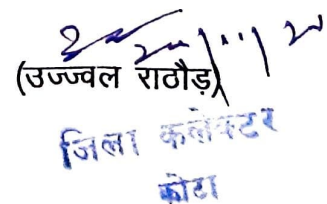 (उज्ज्वल राठौड़)
जिला कलेक्टर
कोटा